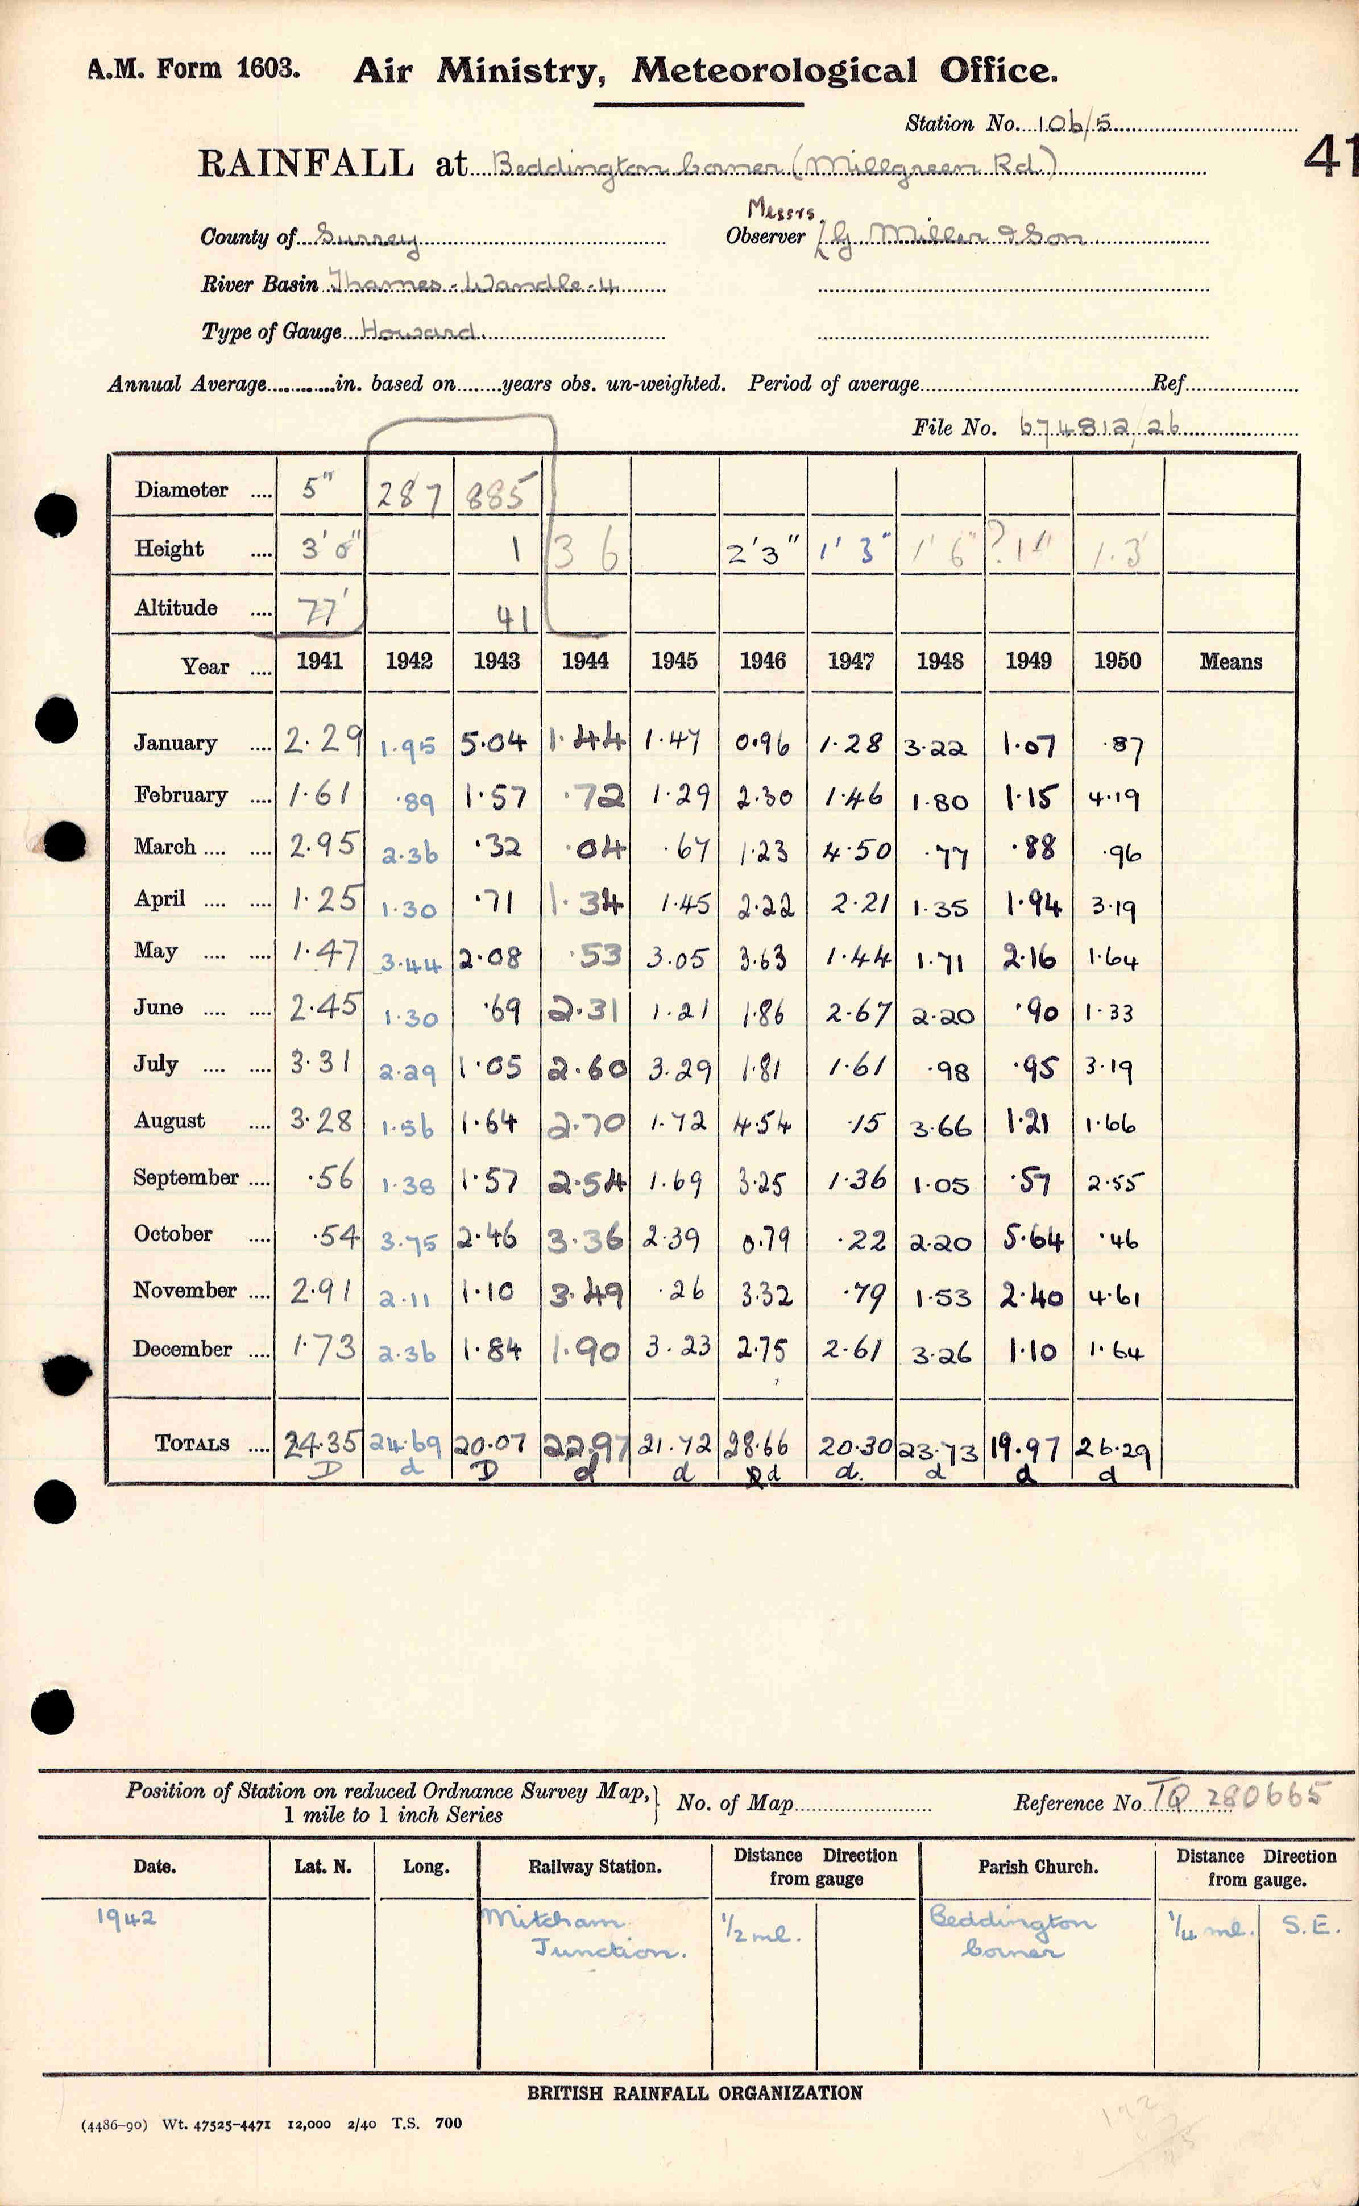 A.M. Form 1603. Air Ministry, Meteorological Office.
Station No. 106/5
41
RAINFALL at Beddington Corner (Millgreen Rd)
Messrs.
County of Surrey Observer G Miller & Son
River Basin Thames - Wandle - 4
Type of Gauge Howard.
Annual Average............in. based on........years obs. un-weighted. Period of average........................Ref....................
File No. 674812/26
Diameter .... 5" 287 885
Height .... 3'0" 1 36 2'3" 1'3" 1'6" ?1" 1.3
Altitude .... 77' 41
Year .... 1941 1942 1943 1944 1945 1946 1947 1948 1949 1950 Means
January .... 2.29 1.95 5.04 1.44 1.47 0.96 1.28 3.22 1.07 .87
February .... 1.61 .89 1.57 .72 1.29 2.30 1.46 1.80 1.15 4.19
March .... .... 2.95 2.36 .32 .04 .67 1.23 4.50 .77 .88 .96
April .... .... 1.25 1.30 .71 1.34 1.45 2.22 2.21 1.35 1.94 3.19
May .... .... 1.47 3.44 2.08 .53 3.05 3.63 1.44 1.71 2.16 1.64
June .... .... 2.45 1.30 .69 2.31 1.21 1.86 2.67 2.20 .90 1.33
July .... .... 3.31 2.29 1.05 2.60 3.29 1.81 1.61 .98 .95 3.19
August .... 3.28 1.56 1.64 2.70 1.72 4.54 .15 3.66 1.21 1.66
September .... .56 1.38 1.57 2.54 1.69 3.25 1.36 1.05 .57 2.55
October .... .54 3.75 2.46 3.36 2.39 0.79 .22 2.20 5.64 .46
November .... 2.91 2.11 1.10 3.49 .26 3.32 .79 1.53 2.40 4.61
December .... 1.73 2.36 1.84 1.90 3.23 2.75 2.61 3.26 1.10 1.64
TOTALS .... 24.35 24.69 20.07 22.97 21.72 28.66 20.30 23.73 19.97 26.29
D d D d d d d. d d d
Position of Station on reduced Ordnance Survey Map, 1 mile to 1 inch Series No. of Map........................ Reference No TQ 280665
Date. Lat. N. Long. Railway Station. Distance Direction from gauge Parish Church. Distance Direction from gauge.
1942 Mitcham Junction. 1/2 ml. Beddington Corner 1/4 ml. S.E.
BRITISH RAINFALL ORGANIZATION
(4486-90) Wt. 47525-4471 12,000 2/40 T.S. 700